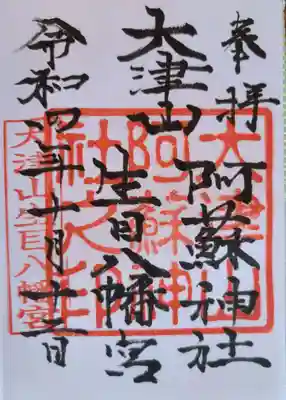 奉拝
大津山
阿蘇神社
生目八幡宮
令和四年十月
大津山
阿蘇神
社之印
大津山生目八幡宮